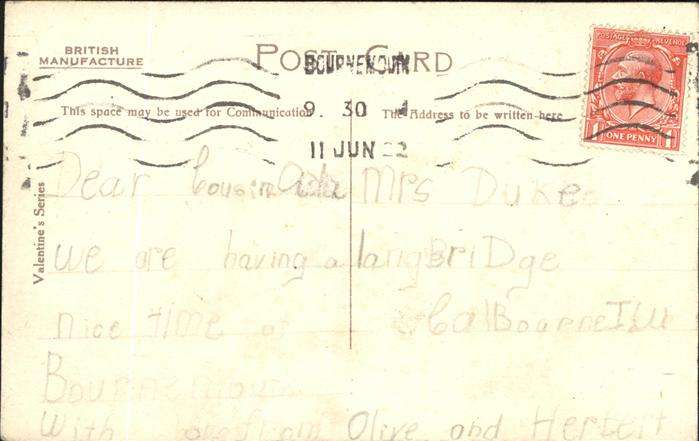 BRITISH
MANUFACTURE
POST CARD
BOURNEMOUTH
9 30
11 JUN 22
This space may be used for Communication
The Address to be written here
POSTAGE REVENUE
ONE PENNY
Valentine's Series
Dear Cousin Ada
we are having a
nice time at
Bournemouth
With love from Olive and Herbert
Mrs Duke
langBriDge
CalBourne I W